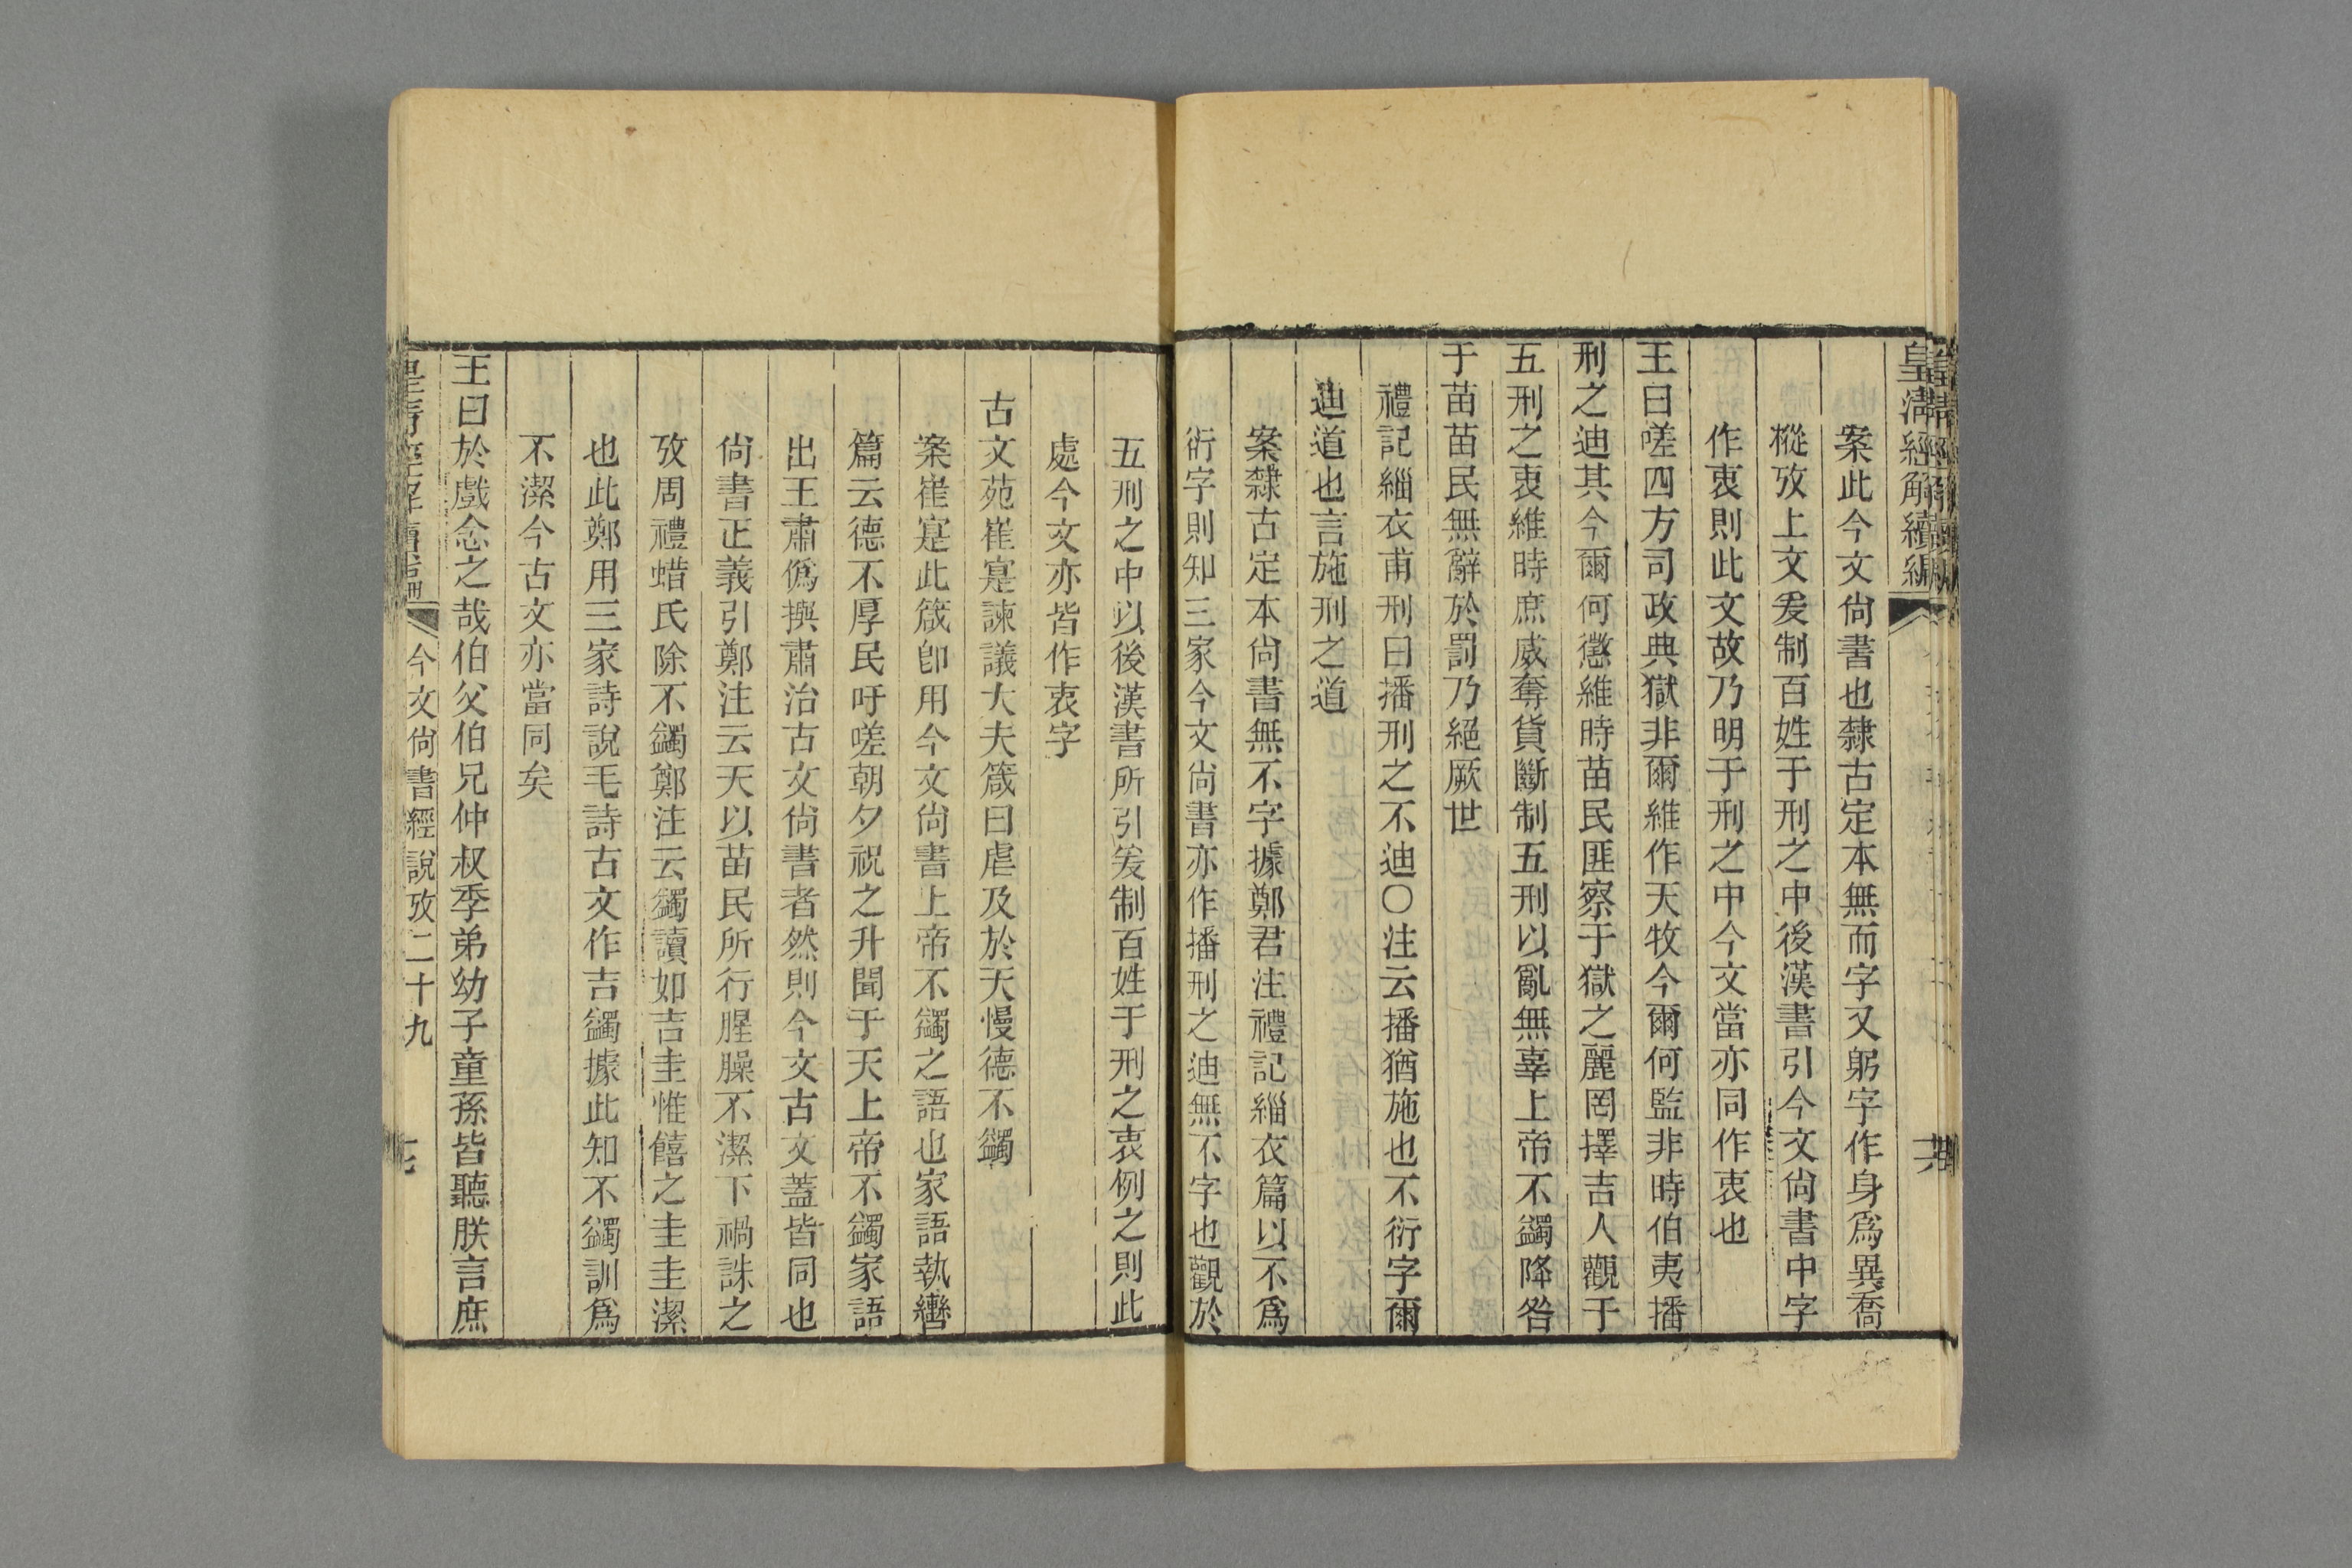 皇清經解續編
案此今文尙書也隸古定本無而字又躬字作身爲異喬
樅攷上文爰制百姓于刑之中後漢書引今文尙書中字
作衷則此文故乃明于刑之中今文當亦同作衷也
王曰嗟四方司政典獄非爾維作天牧今爾何監非時伯夷播
刑之迪其今爾何懲維時苗民匪察于獄之麗罔擇吉人觀于
五刑之衷維時庶威奪貨斷制五刑以亂無辜上帝不蠲降咎
于苗苗民無辭於罰乃絕厥世
禮記緇衣甫刑曰播刑之不迪○注云播猶施也不衍字爾
迪道也言施刑之道
案隸古定本尙書無不字據鄭君注禮記緇衣篇以不爲
衍字則知三家今文尙書亦作播刑之迪無不字也觀於
五刑之中以後漢書所引爰制百姓于刑之衷例之則此
處今文亦皆作衷字
古文苑崔寔諫議大夫箴曰虐及於天慢德不蠲
案崔寔此箴卽用今文尙書上帝不蠲之語也家語執轡
篇云德不厚民吁嗟朝夕祝之升聞于天上帝不蠲家語
出王肅僞撰肅治古文尙書者然則今文古文蓋皆同也
尙書正義引鄭注云天以苗民所行腥臊不潔下禍誅之
攷周禮蜡氏除不蠲鄭注云蠲讀如吉圭惟饎之圭圭潔
也此鄭用三家詩說毛詩古文作吉蠲據此知不蠲訓爲
不潔今古文亦當同矣
王曰於戲念之哉伯父伯兄仲叔季弟幼子童孫皆聽朕言庶
皇清經解續編
今文尙書經說攷二十九
七